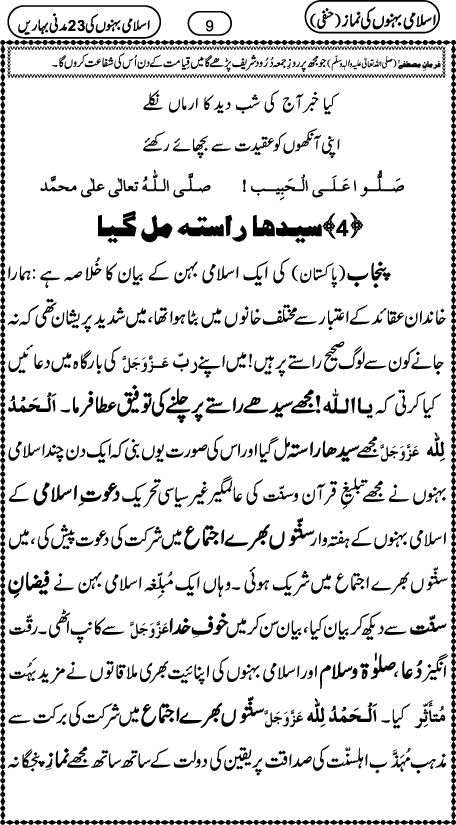 اسلامی بہنوں کی نماز (حنفی)
9
اسلامی بہنوں کی 23 مدنی بہاریں
فرمانِ مصطفےٰ (صلی اللہ تعالیٰ علیہ واٰلہٖ وسلّم) جو مجھ پر روزِ جمعہ دُرُود شریف پڑھے گا میں قیامت کے دن اُس کی شفاعت کروں گا۔
کیا خبر آج کی شب دید کا ارماں نکلے
اپنی آنکھوں کو عقیدت سے بچھائے رکھئے
صَلُّوا عَلَی الْحَبِیب ! صلَّی اللّٰہُ تعالٰی علٰی محمَّد
﴿4﴾ سیدھا راستہ مل گیا
پنجاب (پاکستان) کی ایک اسلامی بہن کے بیان کا خُلاصہ ہے : ہمارا
خاندان عقائد کے اعتبار سے مختلف خانوں میں بٹا ہوا تھا، میں شدید پریشان تھی کہ نہ
جانے کون سے لوگ صحیح راستے پر ہیں! میں اپنے ربّ عَزَّوَجَلَّ کی بارگاہ میں دعائیں
کیا کرتی کہ یا اللہ! مجھے سیدھے راستے پر چلنے کی توفیق عطا فرما۔ اَلْحَمْدُ
لِلّٰہ عَزَّوَجَلَّ مجھے سیدھا راستہ مل گیا اور اس کی صورت یوں بنی کہ ایک دن چند اسلامی
بہنوں نے مجھے تبلیغِ قرآن و سنّت کی عالمگیر غیر سیاسی تحریک دعوتِ اسلامی کے
اسلامی بہنوں کے ہفتہ وار سنّتوں بھرے اجتماع میں شرکت کی دعوت پیش کی، میں
سنّتوں بھرے اجتماع میں شریک ہوئی ۔ وہاں ایک مُبلِّغہ اسلامی بہن نے فیضانِ
سنّت سے دیکھ کر بیان کیا، بیان سن کر میں خوفِ خدا عَزَّوَجَلَّ سے کانپ اٹھی ۔ رقّت
انگیز دُعا، صلوٰۃ و سلام اور اسلامی بہنوں کی اپنائیت بھری ملاقاتوں نے مزید بَہُت
مُتأَثِّر کیا۔ اَلْحَمْدُ لِلّٰہ عَزَّوَجَلَّ سنّتوں بھرے اجتماع میں شرکت کی برکت سے
مذہب مُہَذَّب اہلسنّت کی صداقت پر یقین کی دولت کے ساتھ ساتھ مجھے نمازِ پنجگانہ